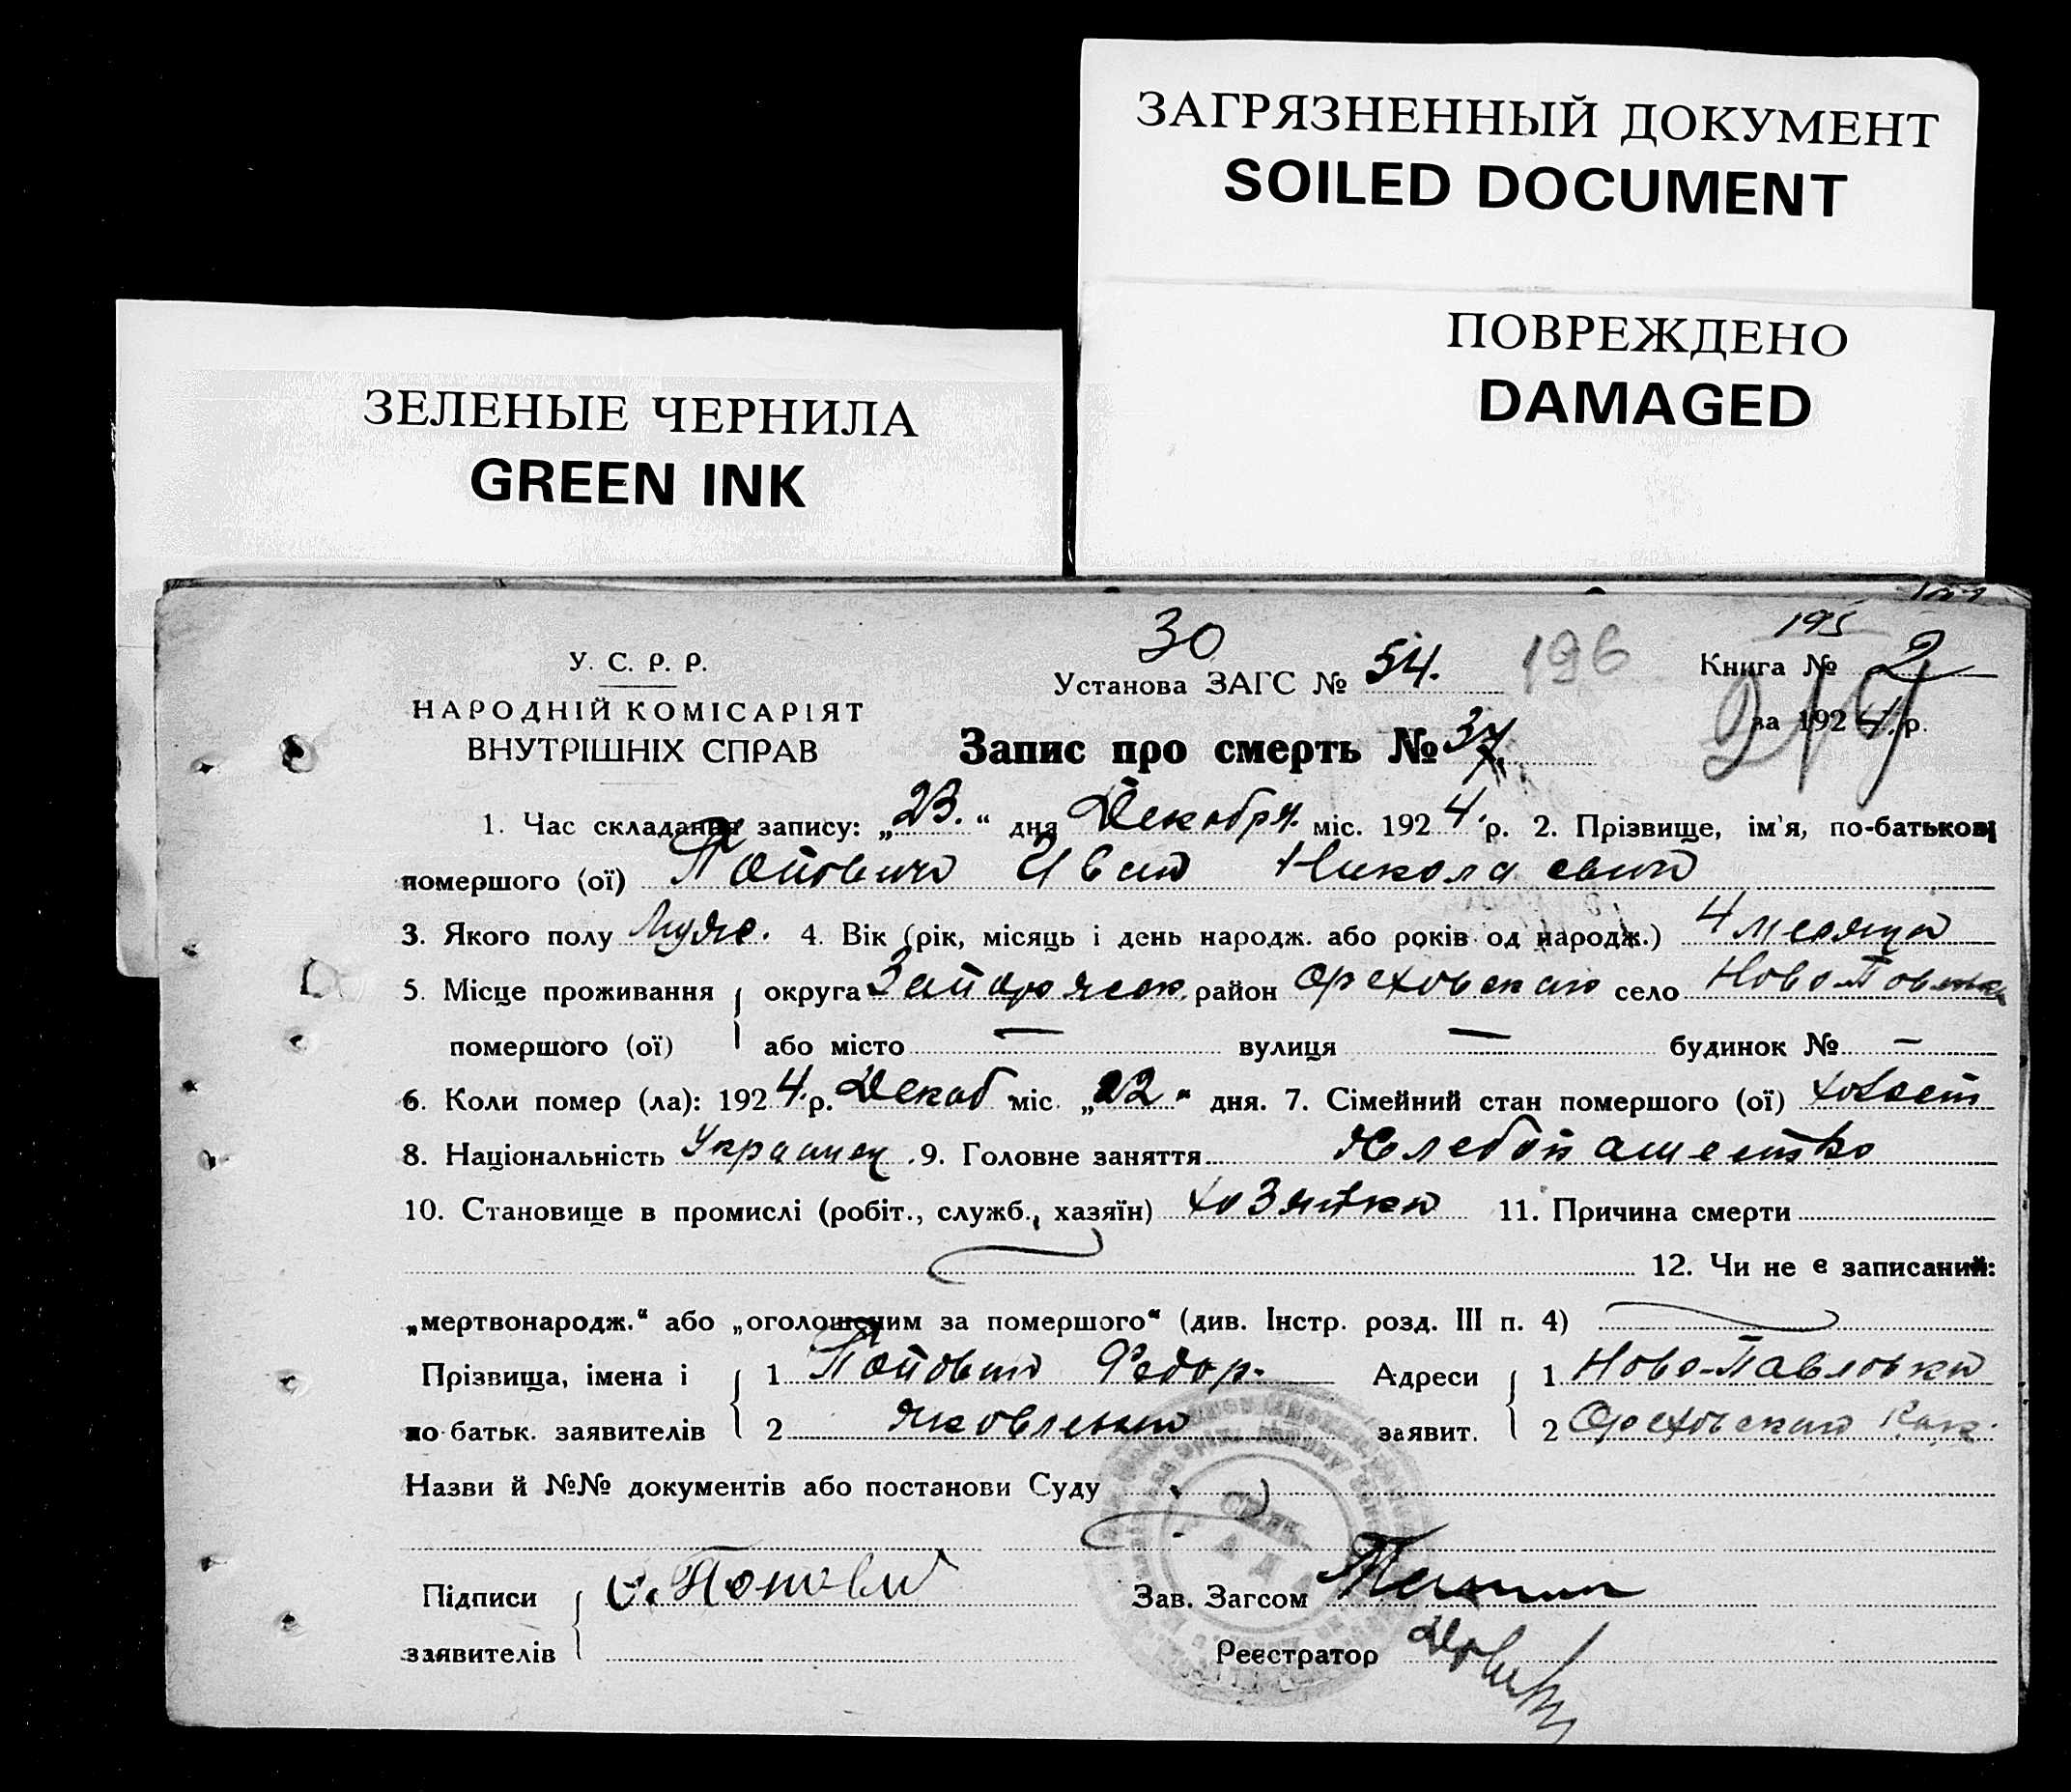 ЗАГРЯЗНЕННЫЙ ДОКУМЕНТ
SOILED DOCUMENT
ПОВРЕЖДЕНО
DAMAGED
ЗЕЛЕНЫЕ ЧЕРНИЛА
GREEN INK
30
195
У. С. Р. Р.
Установа ЗАГС № 54.
196
Книга № 2
НАРОДНІЙ КОМІСАРІЯТ
за 1924 р.
ВНУТРІШНІХ СПРАВ
Запис про смерть № 37
1. Час складання запису: „23.“ дня Декабря міс. 1924 р. 2. Прізвище, ім'я, по-батькові
помершого (ої) Попович Иван Николаевич
3. Якого полу Муже. 4. Вік (рік, місяць і день народж. або років од народж.) 4 месяца
5. Місце проживання округа Запорожск. район Ореховскаго село Ново-Павловка
помершого (ої) або місто — вулиця — будинок № —
6. Коли помер (ла): 1924 р. Декаб міс. „22“ дня. 7. Сімейний стан помершого (ої) холост
8. Національність Украинец 9. Головне заняття Хлебопашество
10. Становище в промислі (робіт., служб., хазяїн) 11. Причина смерти
12. Чи не є записаний:
„мертвонародж.“ або „оголошеним за помершого“ (див. Інстр. розд. III п. 4)
Прізвища, імена і 1 Попович Федор Адреси 1 Ново-Павловка
по батьк. заявителів 2 Яковлевич заявит. 2 Ореховскаго
Назви й №№ документів або постанови Суду
Підписи Попович Зав. Загсом
заявителів Реєстратор